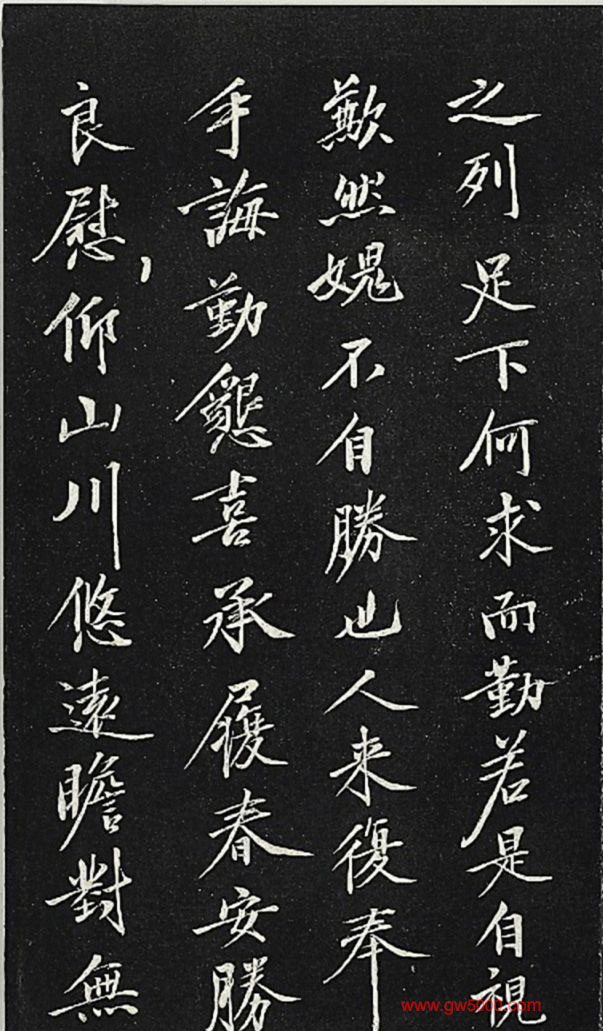 之列足下何求而勤若是自視
歉然媿不自勝也人来復奉
手誨勤懇喜承履春安勝
良慰仰山川悠遠瞻對無
www.gw5000.com